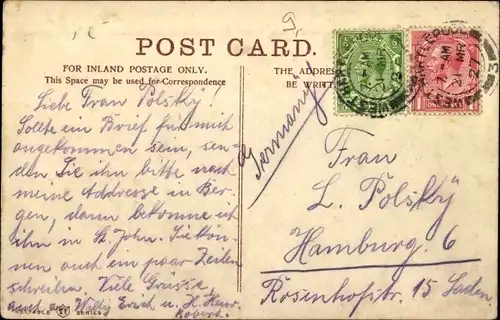 9.
POST CARD.
FOR INLAND POSTAGE ONLY.
This Space may be used for Correspondence
THE ADDRESS
BE WRIT
Liebe Frau Polskÿ!
Sollte ein Brief für mich
angekommen sein, sen-
den Sie ihn bitte nach
meine Addresse in Ber-
gen, dann bekomme ich
ihn in St. John. Sie kön-
nen auch ein paar Zeilen
schreiben. Viele Grüsse,
auch an Willy Erich u. H. Heinr.
Robert.
Germany
Frau
L. Polskÿ
Hamburg. 6
Rosenhofstr. 15 Laden.
7 - AM
21 MR
27
WEST HARTLEPOOL
RELIABLE SERIES